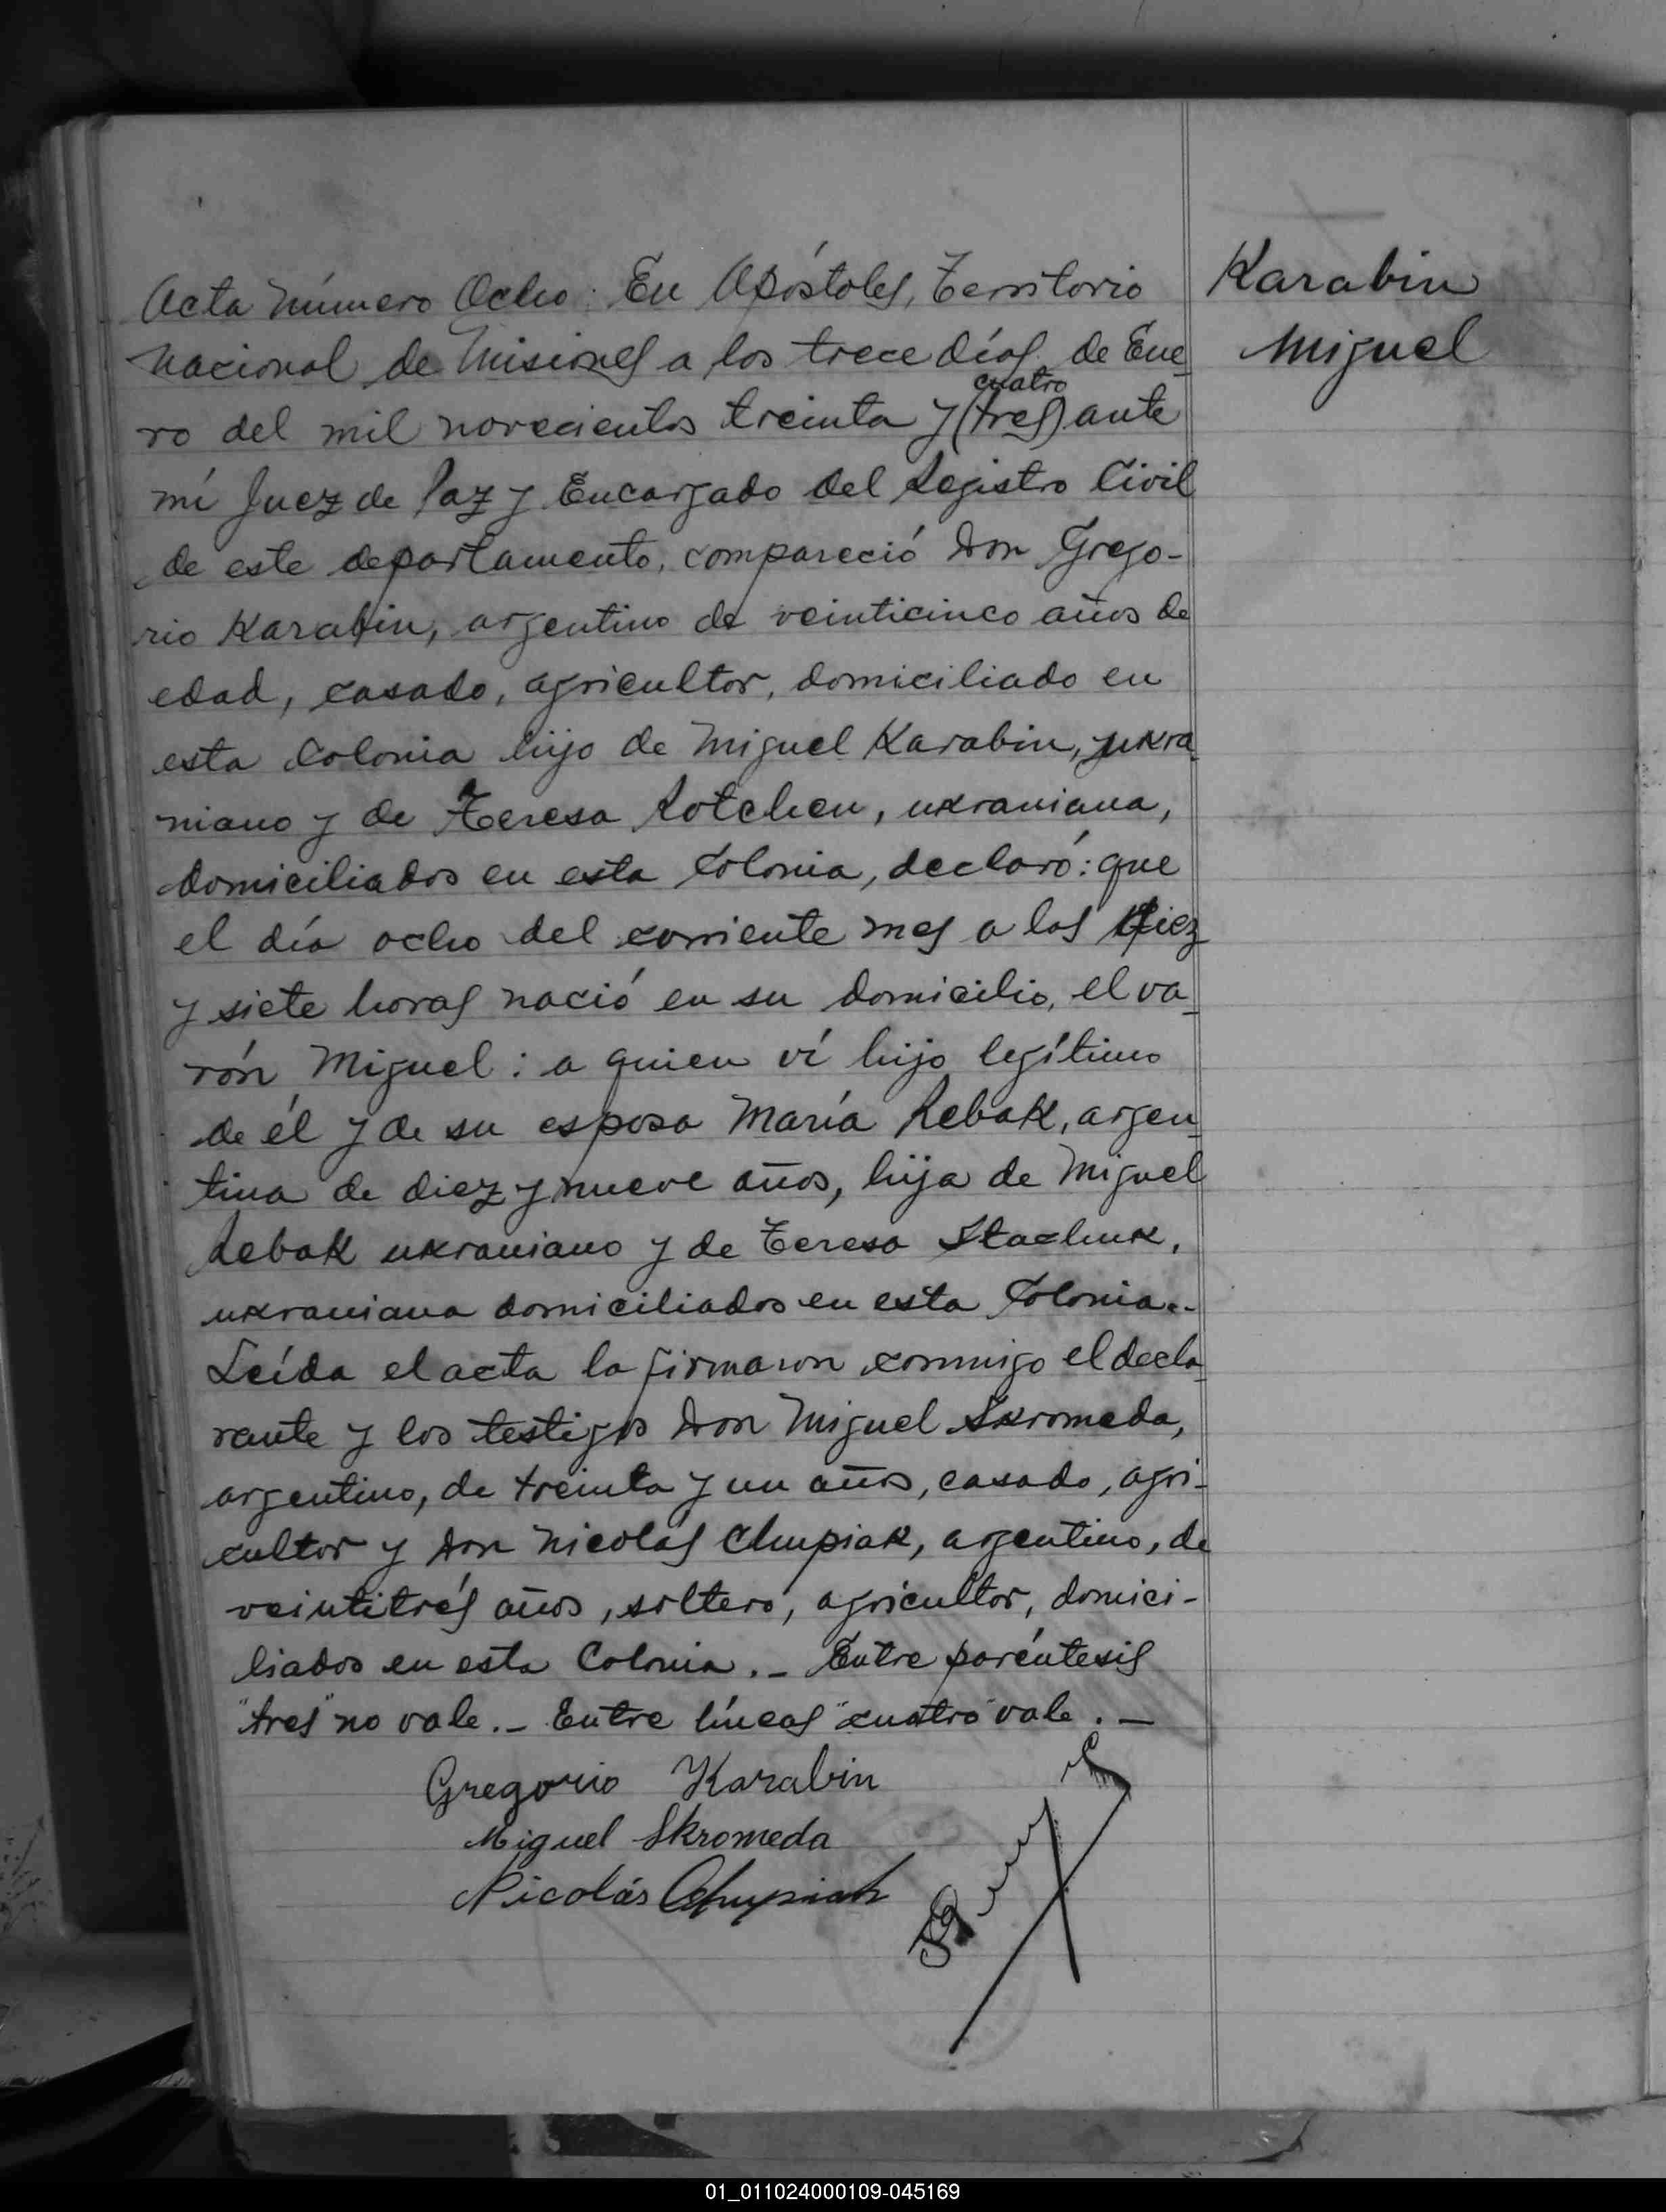 Acta Número Ocho: En Apóstoles, Territorio
Nacional de Misiones a los trece días de Ene
cuatro
ro del mil novecientos treinta y (tres) ante
mí Juez de Paz y Encargado del Registro Civil
de este departamento, compareció Don Grego-
rio Karabin, argentino de veinticinco años de
edad, casado, agricultor, domiciliado en
esta Colonia hijo de Miguel Karabin, ukra
niano y de Teresa Rotchen, ukraniana,
domiciliados en esta Colonia, declaró: que
el día ocho del corriente mes a las diez
y siete horas nació en su domicilio, el va
rón Miguel: a quien ví hijo legítimo
de él y de su esposa María Rebak, argen
tina de diez y nueve años, hija de Miguel
Rebak ukraniano y de Teresa Stachuk,
ukraniana domiciliados en esta Colonia.-
Leída el acta la firmaron conmigo el decla
rante y los testigos Don Miguel Skromeda,
argentino, de treinta y un años, casado, agri-
cultor y Don Nicolás Chupiak, argentino, de
veintitrés años, soltero, agricultor, domici-
liados en esta Colonia.- Entre paréntesis
"tres" no vale.- Entre líneas "cuatro" vale.-
Gregorio Karabin
Miguel Skromeda
Nicolás Chupiak
Karabin
Miguel
01_011024000109-045169